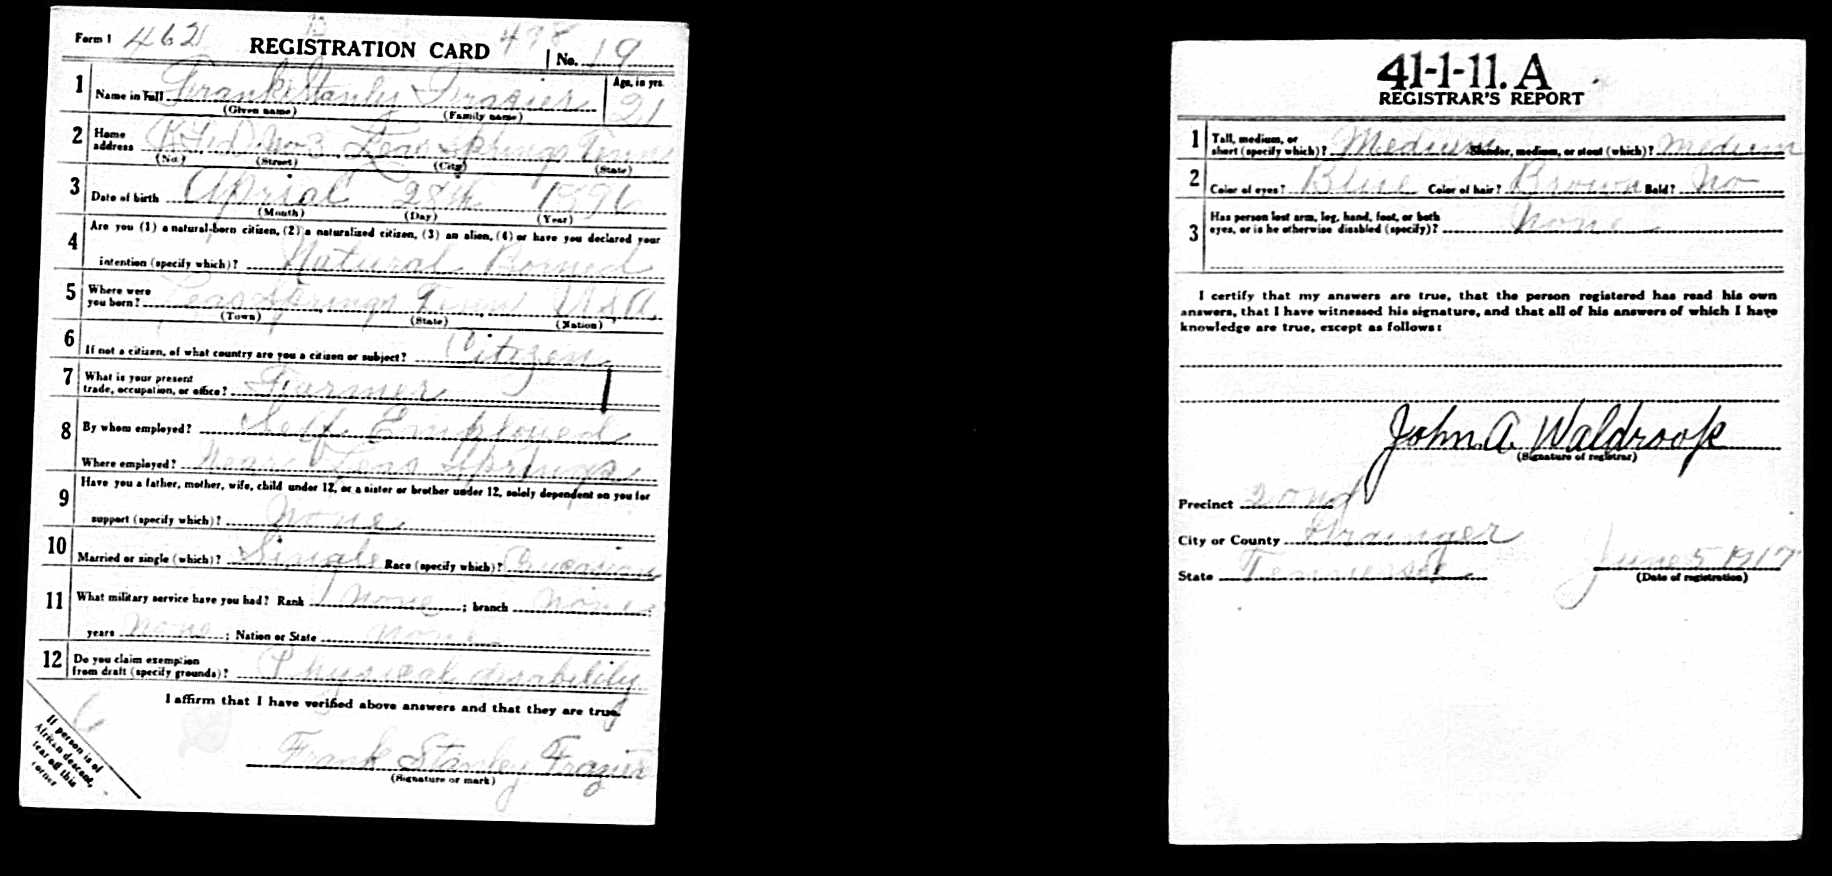 Form 1 462 REGISTRATION CARD 498 No. 19
1 Name in full Frank Stanly Frazier Age, in yrs. 21
(Given name) (Family name)
2 Home address (R.F.D.) No 3 Leas Springs Tenn
(No.) (Street) (City) (State)
3 Date of birth Aprial 28th 1896
(Month) (Day) (Year)
4 Are you (1) a natural-born citizen, (2) a naturalized citizen, (3) an alien, (4) or have you declared your
intention (specify which)? Natural Borned
5 Where were you born? Leas Springs Tenn U S A
(Town) (State) (Nation)
6 If not a citizen, of what country are you a citizen or subject? Citizen
7 What is your present trade, occupation, or office? Farmer
8 By whom employed? Self Employed
Where employed? Near Leas Springs
9 Have you a father, mother, wife, child under 12, or a sister or brother under 12, solely dependent on you for
support (specify which)? None
10 Married or single (which)? Single Race (specify which)? Caucasian
11 What military service have you had? Rank none ; branch none ;
years none ; Nation or State none
12 Do you claim exemption from draft (specify grounds)? Physical disability
I affirm that I have verified above answers and that they are true.
Frank Stanley Frazier
(Signature or mark)
If person is of
African descent,
tear off this
corner
41-1-11. A
REGISTRAR'S REPORT
1 Tall, medium, or short (specify which)? Medium Slender, medium, or stout (which)? medium
2 Color of eyes? Blue Color of hair? Brown Bald? No
3 Has person lost arm, leg, hand, foot, or both eyes, or is he otherwise disabled (specify)? None
I certify that my answers are true, that the person registered has read his own
answers, that I have witnessed his signature, and that all of his answers of which I have
knowledge are true, except as follows:
John A. Waldroop
(Signature of registrar)
Precinct 22nd
City or County Grainger
State Tennessee June 5 1917
(Date of registration)